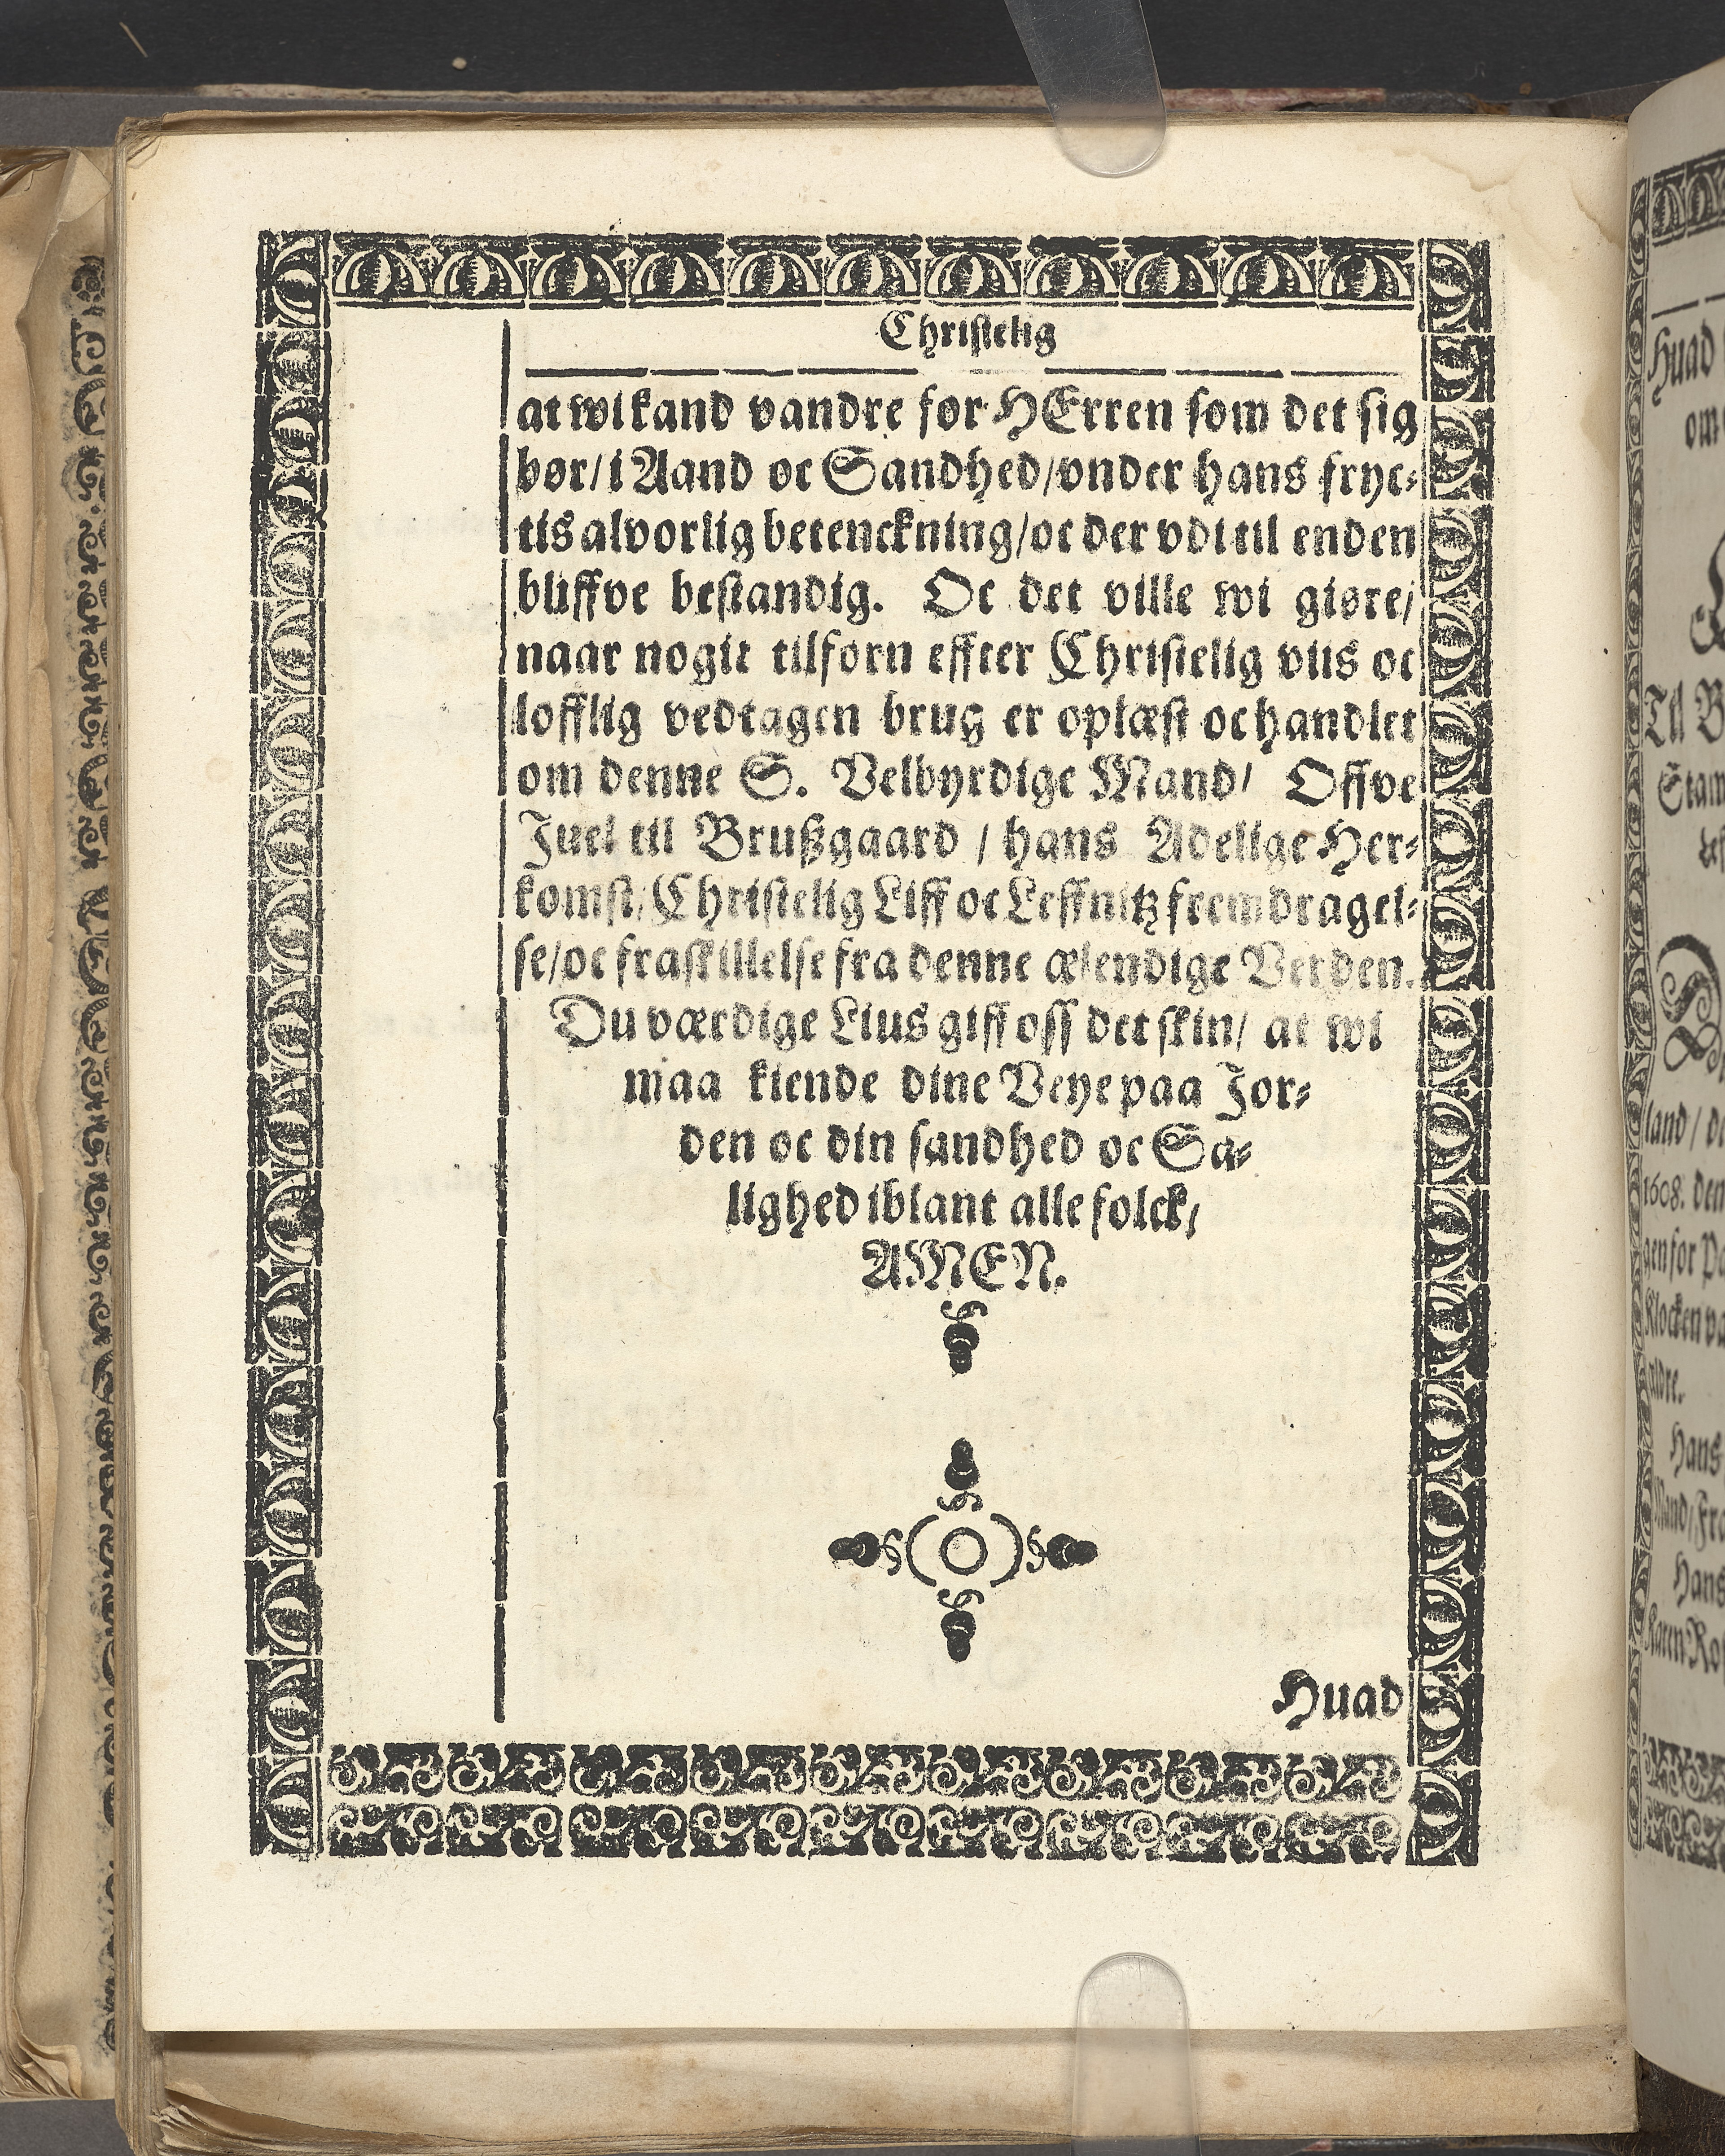 Christelig
at wi kand vandre for HErren som det sig
bør/ i Aand oc Sandhed/ vnder hans fryc⸗
tis alvorlig betenckning/ oc der vdi til enden
bliffve bestandig. Oc det ville wi giøre/
naar nogit tilforn effter Christelig viis oc
lofflig vedtagen brug er oplæst oc handlet
om denne S. Velbyrdige Mand/ Offve
Juel til Brußgaard / hans Adelige Her⸗
komst/ Christelig Liff oc Leffnitz fremdragel⸗
se/ oc fraskillelse fra denne ælendige Verden.
Du værdige Lius giff oss det skin/ at wi
maa kiende dine Veye paa Jor⸗
den oc din sandhed oc Sa⸗
lighed iblant alle folck/
AMEN.
Huad
Huad
om
Til B
Stam
land/ d
1608. den
gen for Pa
Klocken va
aldre.
Hans
Mand/ Fr
Hans
Karen Ro